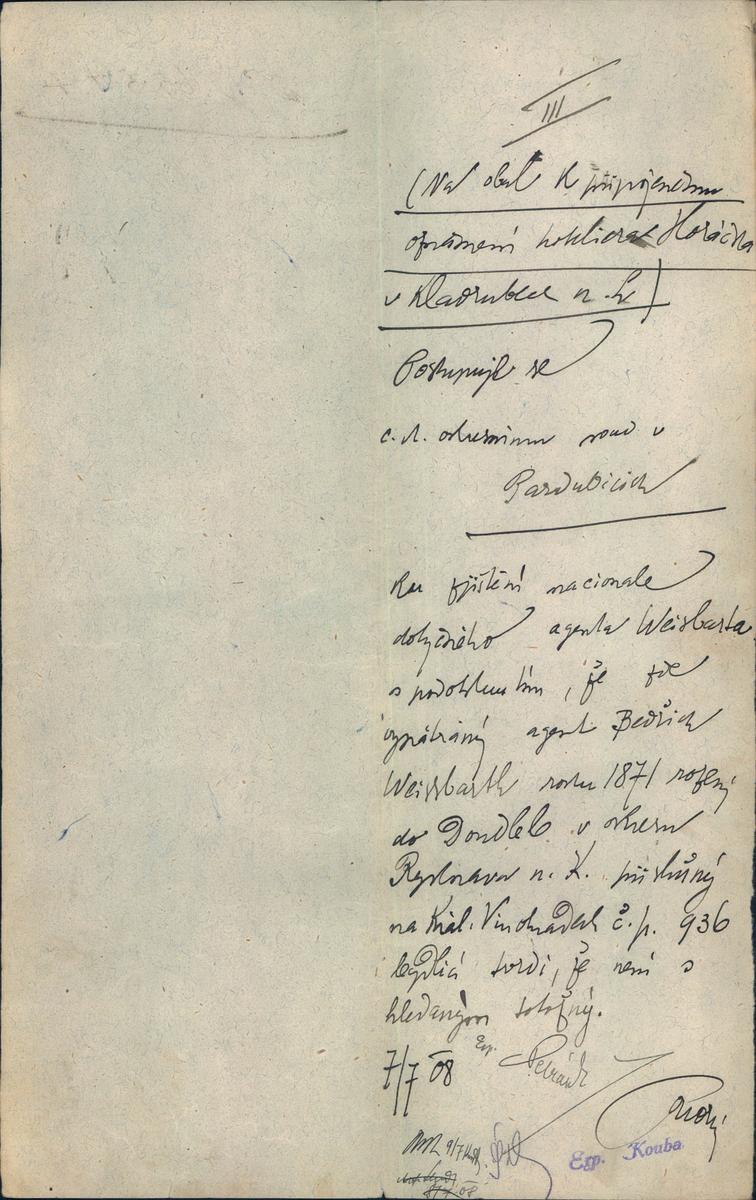 III
(Na obal k připojenému
oprávnění hokliera Horáčka
v Kladrubech n. L.)
Postupuje se
c. k. okresnímu soud v
Pardubicích
ku zjištění nacionale
dotyčného agenta Weissbarta
s podotknutím, že zde
vypátraný agent Bedřich
Weissbarth roku 1871 rozený
do Doudleb v okresu
Rychnava n. K. příslušný
na Král. Vinohradech č. p. 936
bydlící tvrdí, že není s
hledaným totožný.
7/7 08 Exp. Petránk
9/7
Exp. Kouba
8/7 08